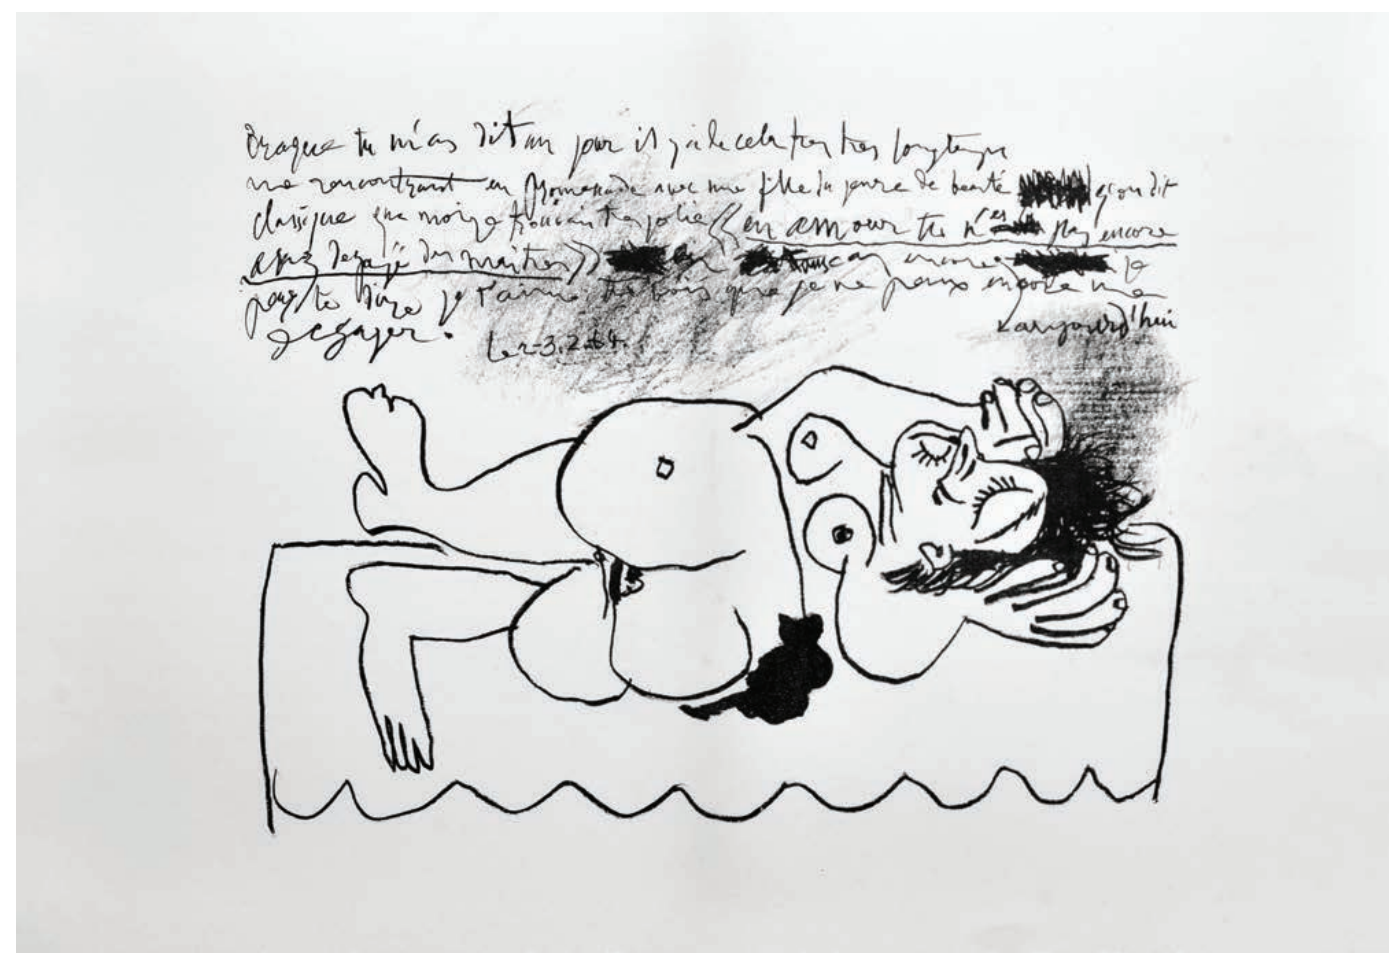 Braque tu m'as dit un jour il y a de cela tres tres longtemps
me rencontrant en promenade avec une fille du genre de beauté qu'on dit
classique que moi je trouvais tres jolie « en amour tu n'es pas encore
assez dégagé des maitres » encore je
peux te dire je t'aime tu vois que je ne peux encore me
aujourd'hui
degager.